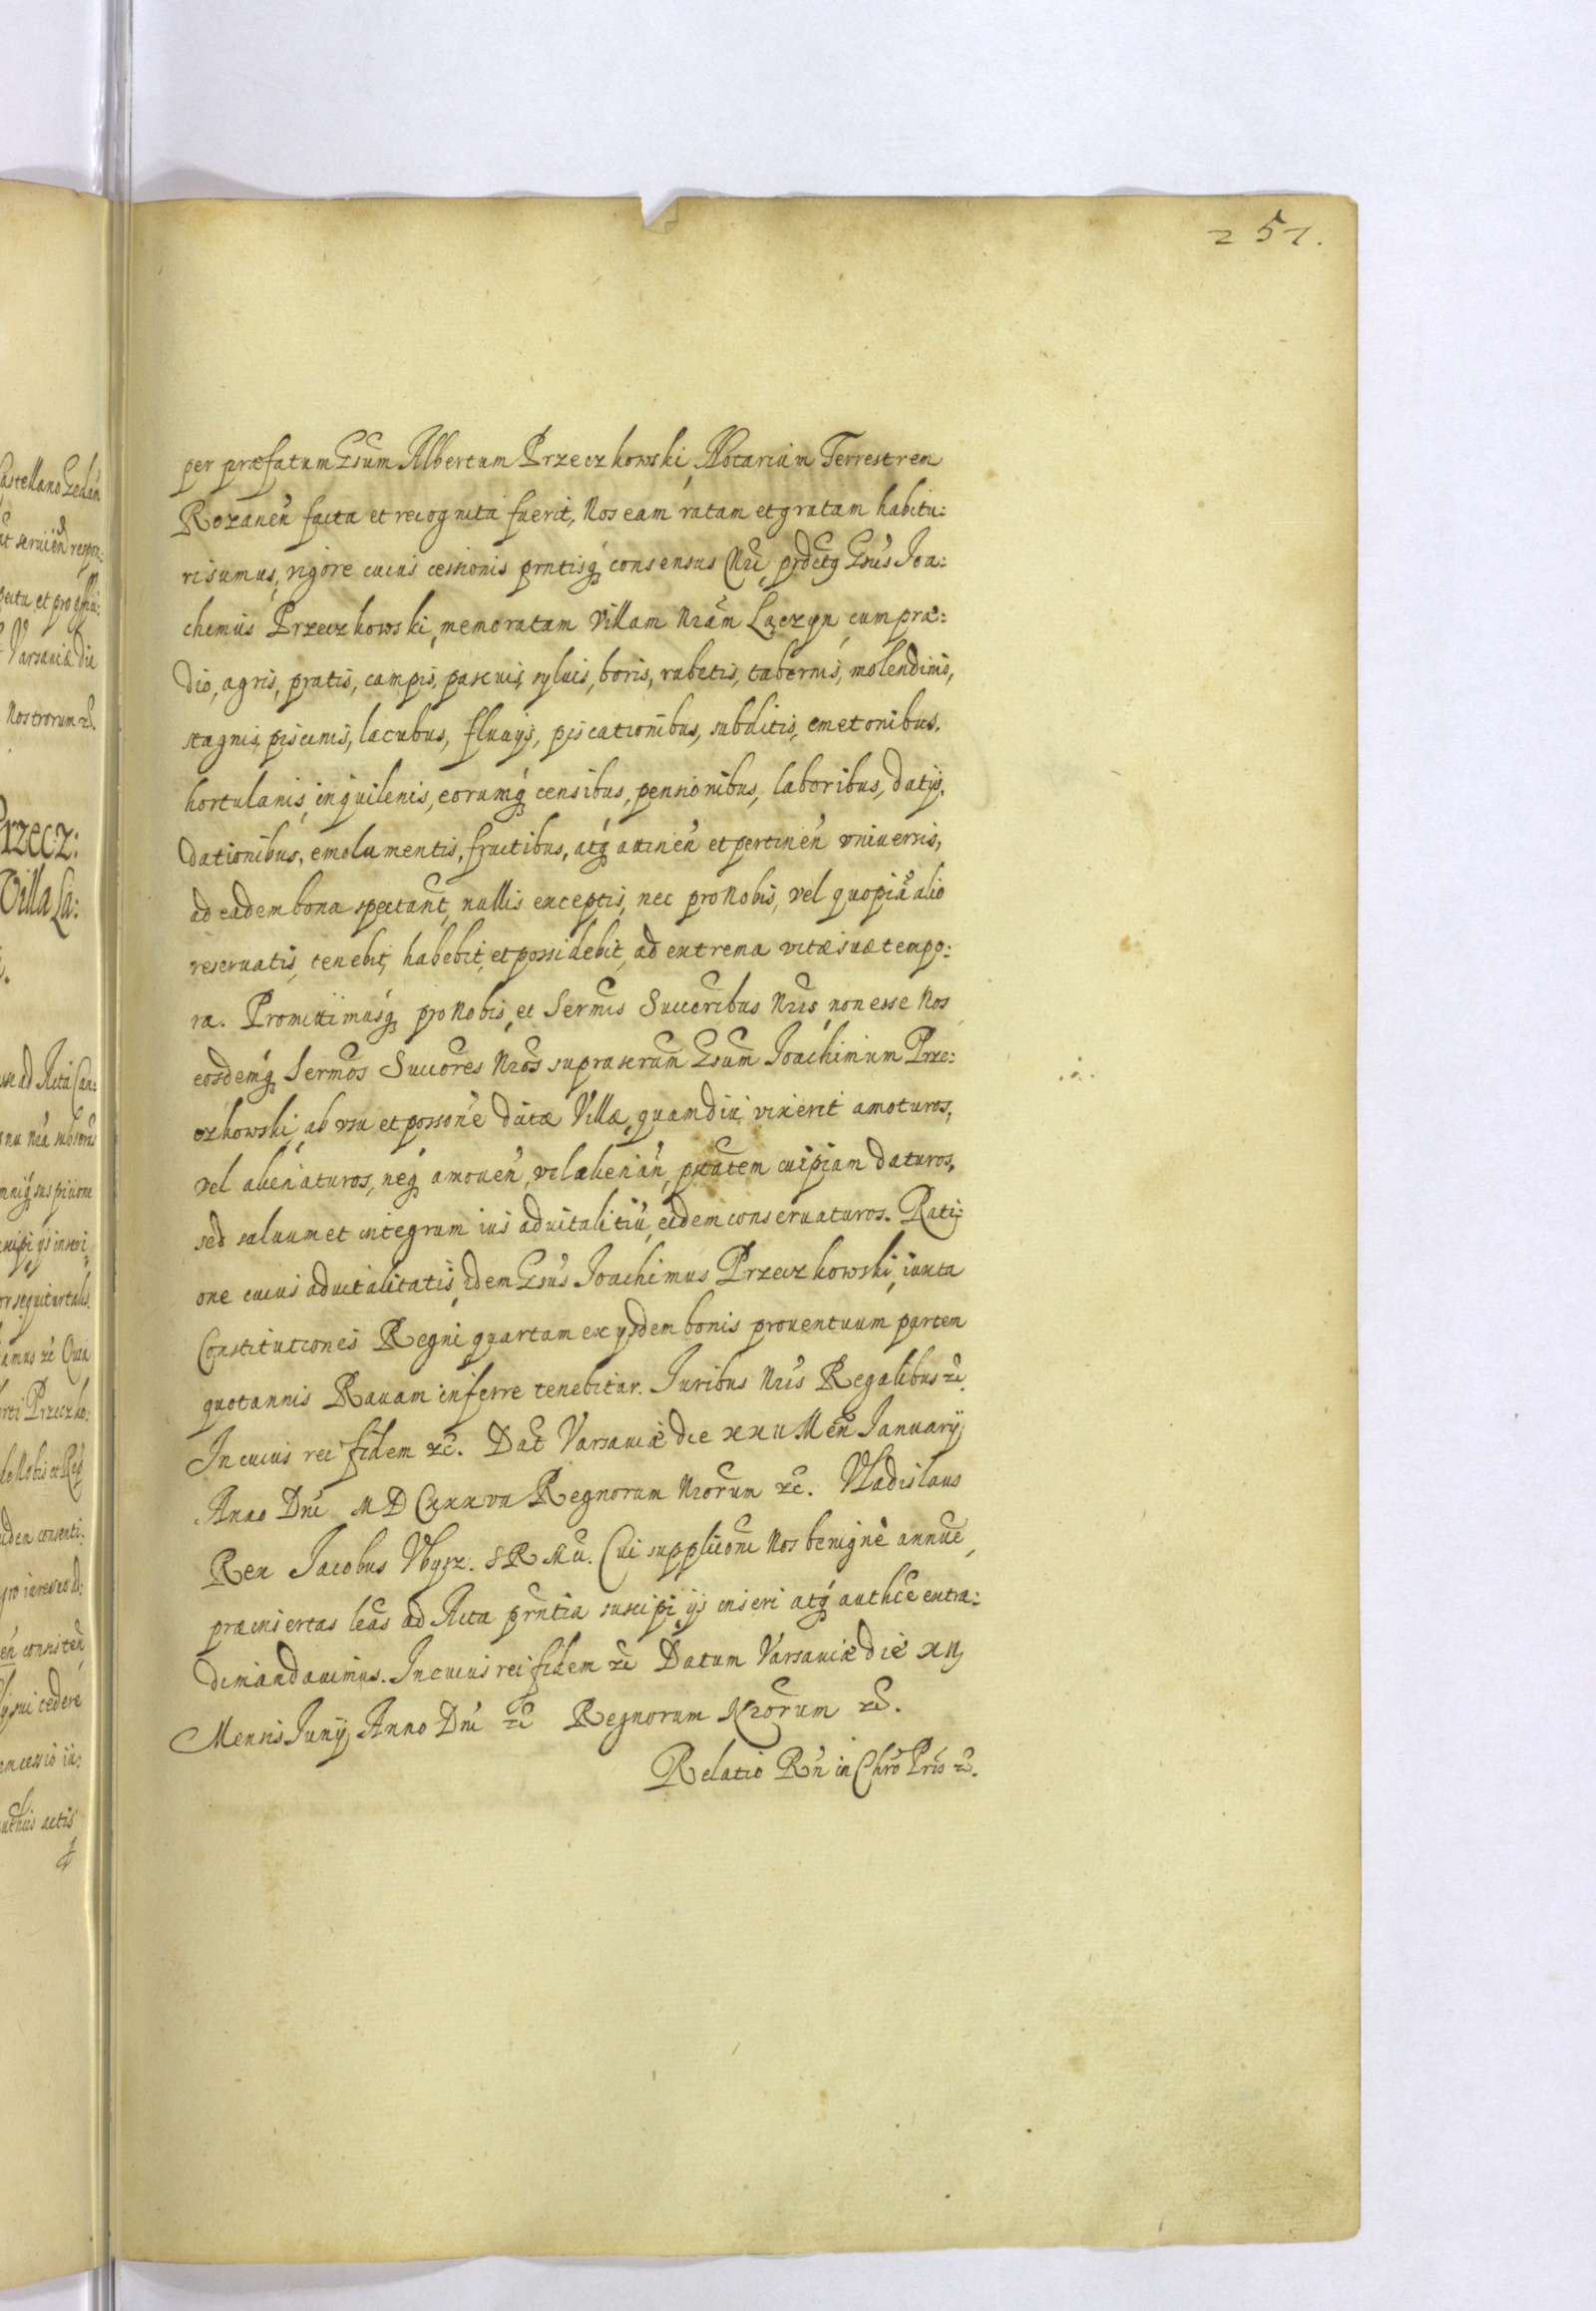 251.
per præfatum Gsum Albertum Przeczkowski, Notarium Terrestrem
Rozanen̄ facta et recognita fuerit, Nos eam ratam et gratam habitu:
ri sumus, vigore cuius cessionis prntisq́ consensus Nri, prdctq Gsus Joa:
chimus Przeczkowski, memoratam Villam Nram Lączyn, cum præ:
dio, agris, pratis, campis, pascuis, syluis, boris, rubetis, tabernis, molendinis,
stagnis, piscinis, lacubus, fluuijs, piscationibus, subditis, cmetonibus,
hortulanis, inquilinis, eorumq́ censibus, pensionibus, laboribus, datijs,
dationibus, emolumentis, fructibus, atq́ attinen̄ et pertinen̄ vniuersis,
ad eadem bona spectant̄, nullis exceptis, nec pro Nobis, vel quopiā alio
reseruatis, tenebit, habebit, et possidebit, ad extrema vitæ suæ tempo:
ra. Promittimusq́ pro Nobis, et Sermis Succeribus Nris, non esse Nos
eosdemq́ Sermos Succores Nros suprascrum Gsum Joachimum Prze:
czkowski, ab vsu et possone dictæ Villæ, quamdiu vixerit amoturos,
vel alienaturos, neq́ amouen̄, vel alienan̄, ptatem cuipiam daturos,
sed saluum et integrum ius aduitalitiū, eidem conseruaturos. Rati:
one cuius aduitalitatis, idem Gsus Joachimus Przeczkowski, iuxta
Constitutiones Regni quartam ex ijsdem bonis prouentuum partem
quotannis Rauam inferre tenebitur. Juribus Nris Regalibus &c.
In cuius rei fidem &c. Dat Varsauiæ die xxii Men̄ Januarij
Anno Dni MDCxxxvii Regnorum Nrorum &c. Vladislaus
Rex Jacobus Vbysz. SRMtis. Cui suppliconi Nos benigne annuen̄,
præinsertas lras ad Acta prntia suscipi, ijs inseri atq́ authce extra:
di mandauimus. In cuius rei fidem &c Datum Varsauiæ die xii
Mensis Junij Anno Dni &c Regnorum Nrorum &c.
Relatio Rn̄ in Chro Pris &c.